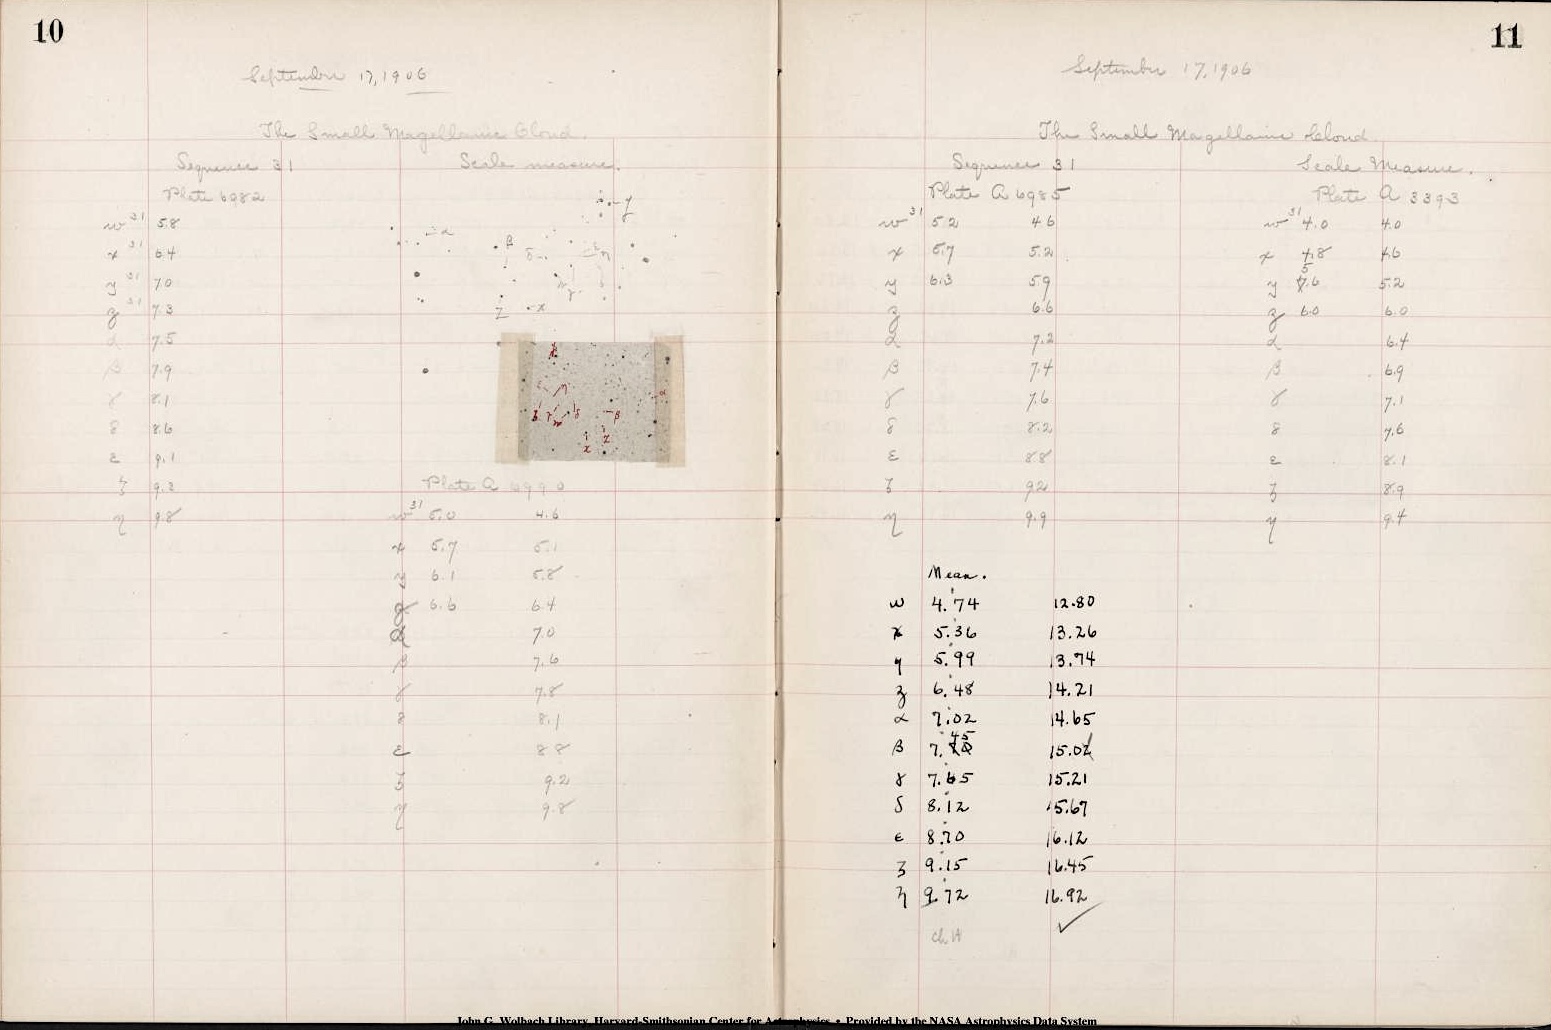 10
September 17, 1906
The Small Magellanic Cloud.
Sequence 31 Scale measure.
Plate 6982
w31 5.8
x31 6.4
y31 7.0
z31 7.3
α 7.5
β 7.9
γ 8.1
δ 8.6
ε 9.1
ζ 9.2
η 9.8
Plate A 6990
w31 5.0 4.6
x 5.7 5.1
y 6.1 5.8
z 6.6 6.4
α 7.0
β 7.6
γ 7.8
δ 8.1
ε 8.8
ζ 9.2
η 9.8
11
September 17, 1906
The Small Magellanic Cloud
Sequence 31 Scale Measure.
Plate A 6985
w31 5.2 4.6
x 5.7 5.2
y 6.3 5.9
z 6.6
α 7.2
β 7.4
γ 7.6
δ 8.2
ε 8.8
ζ 9.2
η 9.9
Plate A 3393
w31 4.0 4.0
x 4.8 4.6
y 5.6 5.2
z 6.0 6.0
α 6.4
β 6.9
γ 7.1
δ 7.6
ε 8.1
ζ 8.9
η 9.4
Mean.
w 4.74 12.80
x 5.36 13.26
y 5.99 13.74
z 6.48 14.21
α 7.02 14.65
β 7.45 15.02
γ 7.65 15.21
δ 8.12 15.67
ε 8.70 16.12
ζ 9.15 16.45
η 9.72 16.92
ch H
John G. Wolbach Library, Harvard-Smithsonian Center for Astrophysics • Provided by the NASA Astrophysics Data System